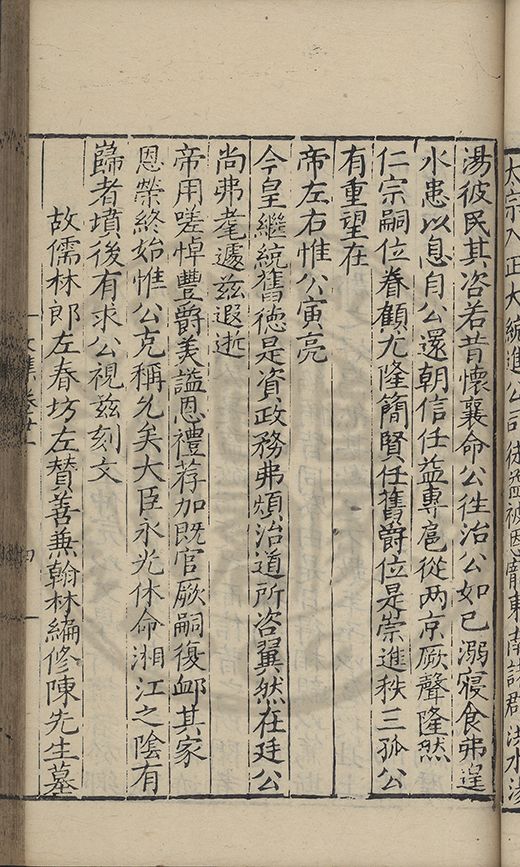 太宗入正大統進公司徒益被恩寵東南諸郡洪水湯
湯彼民其咨若昔懷襄命公徃治公如己溺寝食弗遑
水患以息自公還朝信任益專扈從两京厥聲隆然
仁宗嗣位眷顧尤隆簡賢任舊爵位是崇進秩三孤公
有重望在
帝左右惟公寅亮
今皇繼統舊徳是資政務弗煩治道所咨翼然在廷公
尚弗耄遽兹遐逝
帝用嗟悼豊爵美謚恩禮荐加既官厥嗣復䘏其家
恩榮終始惟公克稱允矣大臣永光休命湘江之陰有
歸者墳後有求公視兹刻文
故儒林郎左春坊左賛善兼翰林編修陳先生墓
文集卷廿一
四